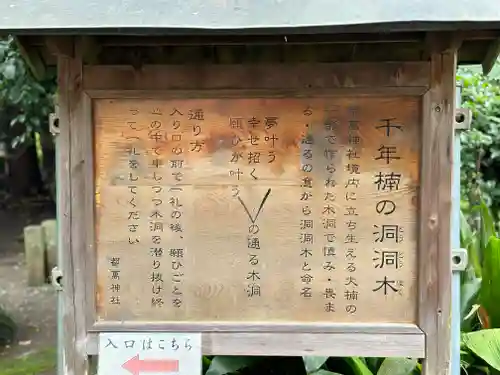 千年楠の洞洞木
都萬神社境内に立ち生える大楠の
一部で作られた木洞で慎み・畏ま
る・通るの意から洞洞木と命名
夢叶う
幸せ招く
願ひが叶う
の通る木洞
通り方
入り口の前で一礼の後、願ひごとを
心の中で申しつつ木洞を潜り抜け終
って一礼をしてください
都萬神社
入口はこちら